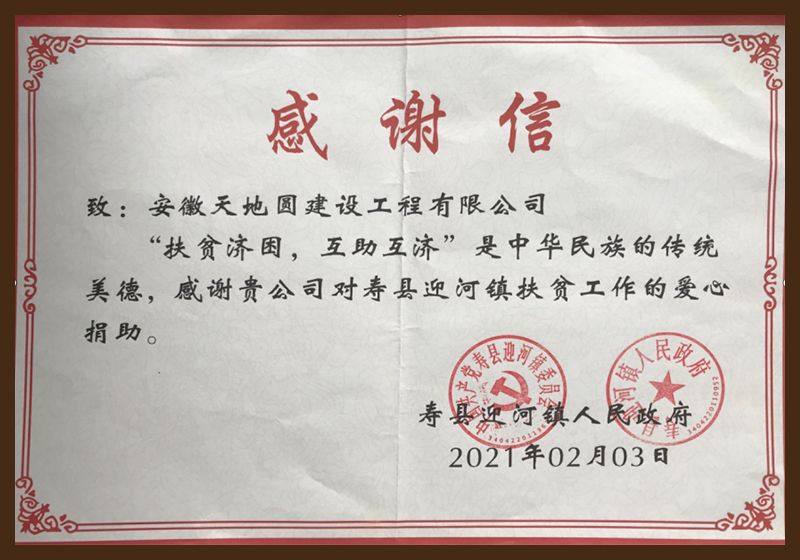 感谢信
致：安徽天地圆建设工程有限公司
“扶贫济困，互助互济”是中华民族的传统
美德，感谢贵公司对寿县迎河镇扶贫工作的爱心
捐助。
中国共产党寿县迎河镇委员会
寿县迎河镇人民政府
3404220110952
寿县迎河镇人民政府
2021年02月03日